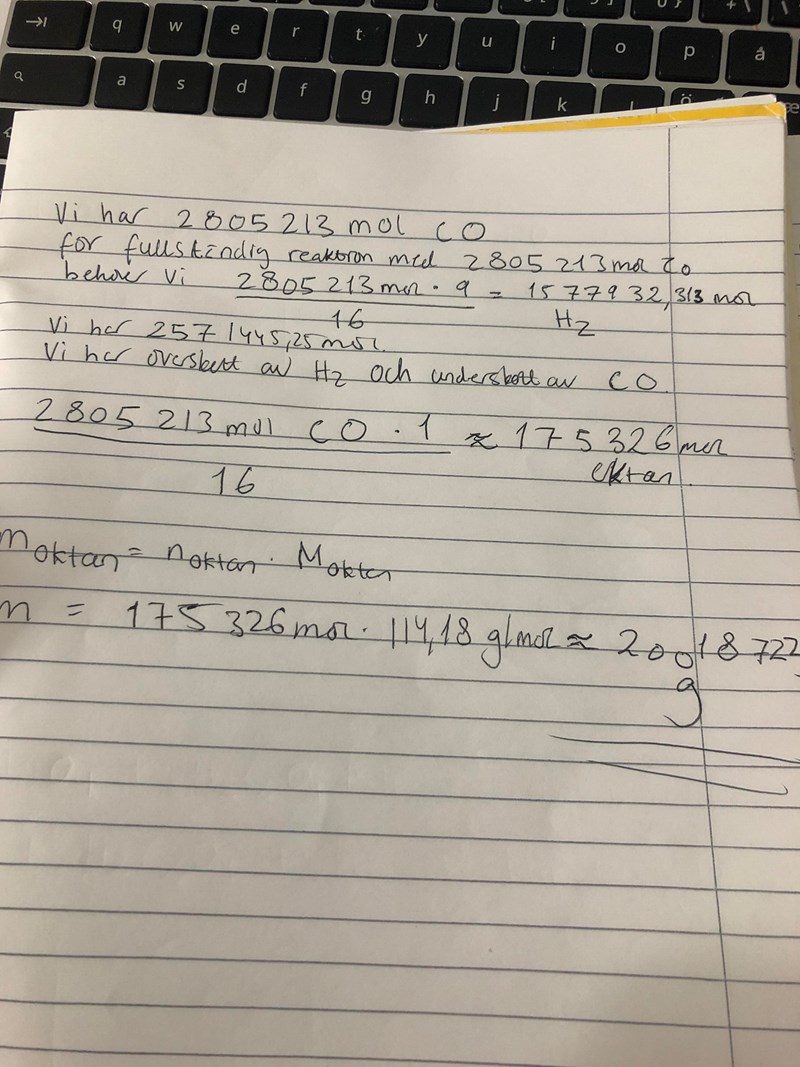 q w e r t y u i o p å
a s d f g h j k
Vi har 2805213 mol CO
för fullständig reaktion med 2805213 mol CO
behöver vi 2805213 mol · 9 = 1577932,313 mol
16 H2
Vi har 2571445,25 mol.
Vi har överskott av H2 och underskott av CO
2805213 mol CO · 1 ≈ 175326 mol
16 oktan.
m oktan = n oktan · M oktan
m = 175326 mol · 114,18 g/mol ≈ 20018722
g